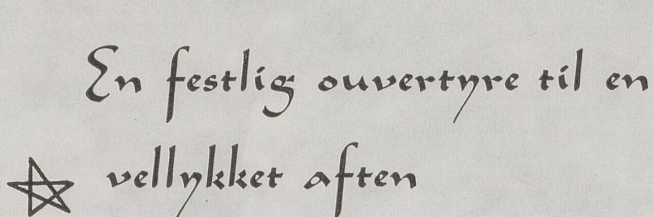 En festlig ouvertyre til en
vellykket aften